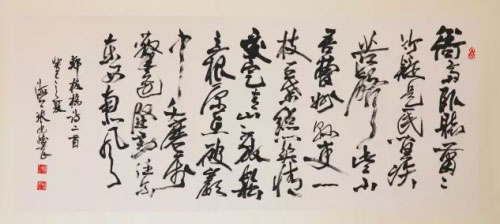 衙斋卧聽蕭蕭
竹疑是民間疾
苦聲些小
吾曹州縣吏一
枝一葉總關情
咬定青山不放鬆
立根原在破巖
中千磨萬
擊還堅勁任爾
東西南北風
鄭板橋詩二首
癸巳之夏